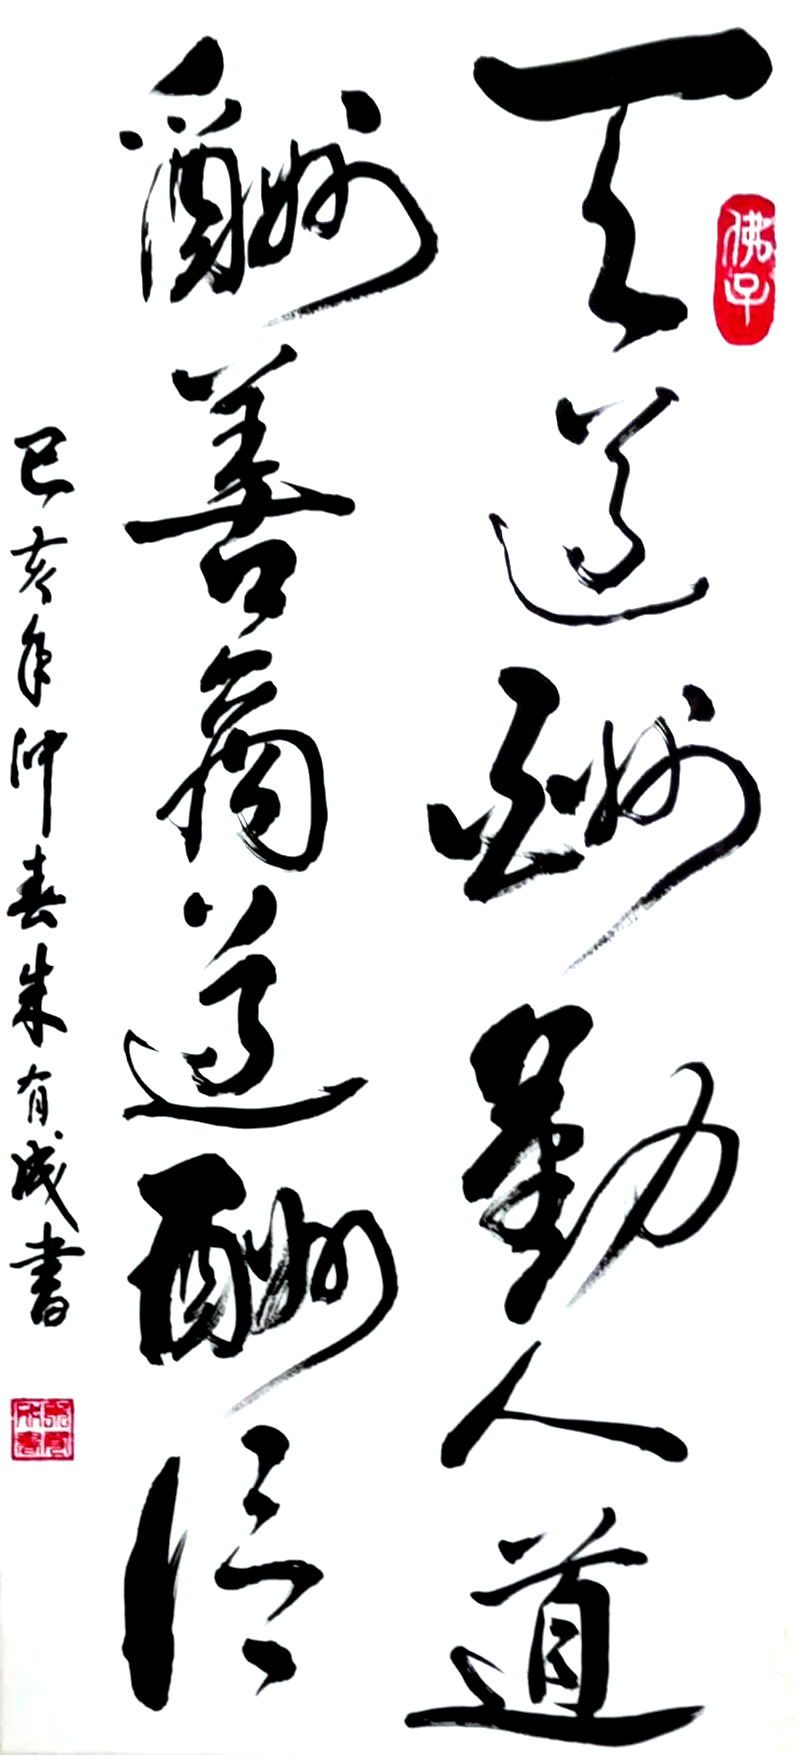 佛子
天道酬勤人道
酬善商道酬信
己亥年仲春朱有成书